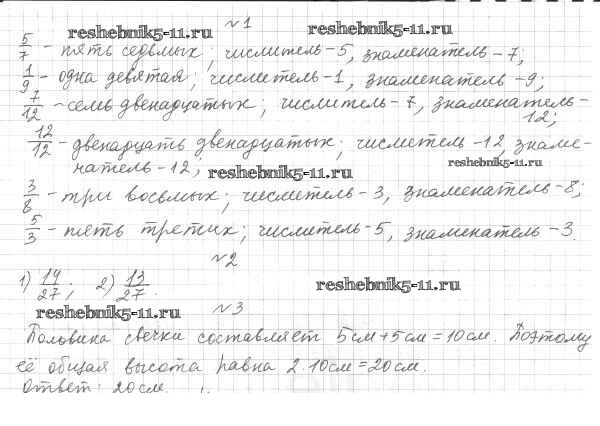 reshebnik5-11.ru №1 reshebnik5-11.ru
5/7 - пять седьмых; числитель-5, знаменатель-7;
1/9 - одна девятая; числитель-1, знаменатель-9;
7/12 - семь двенадцатых; числитель-7, знаменатель-
12;
12/12 - двенадцать двенадцатых; числитель-12, знаме-
натель-12; reshebnik5-11.ru reshebnik5-11.ru
3/8 - три восьмых; числитель-3, знаменатель-8;
5/3 - пять третих; числитель-5, знаменатель-3.
№2
1) 14/27; 2) 13/27. reshebnik5-11.ru
reshebnik5-11.ru №3
Половина свечки составляет 5см+5см=10см. Поэтому
её общая высота равна 2·10см=20см.
Ответ: 20см.